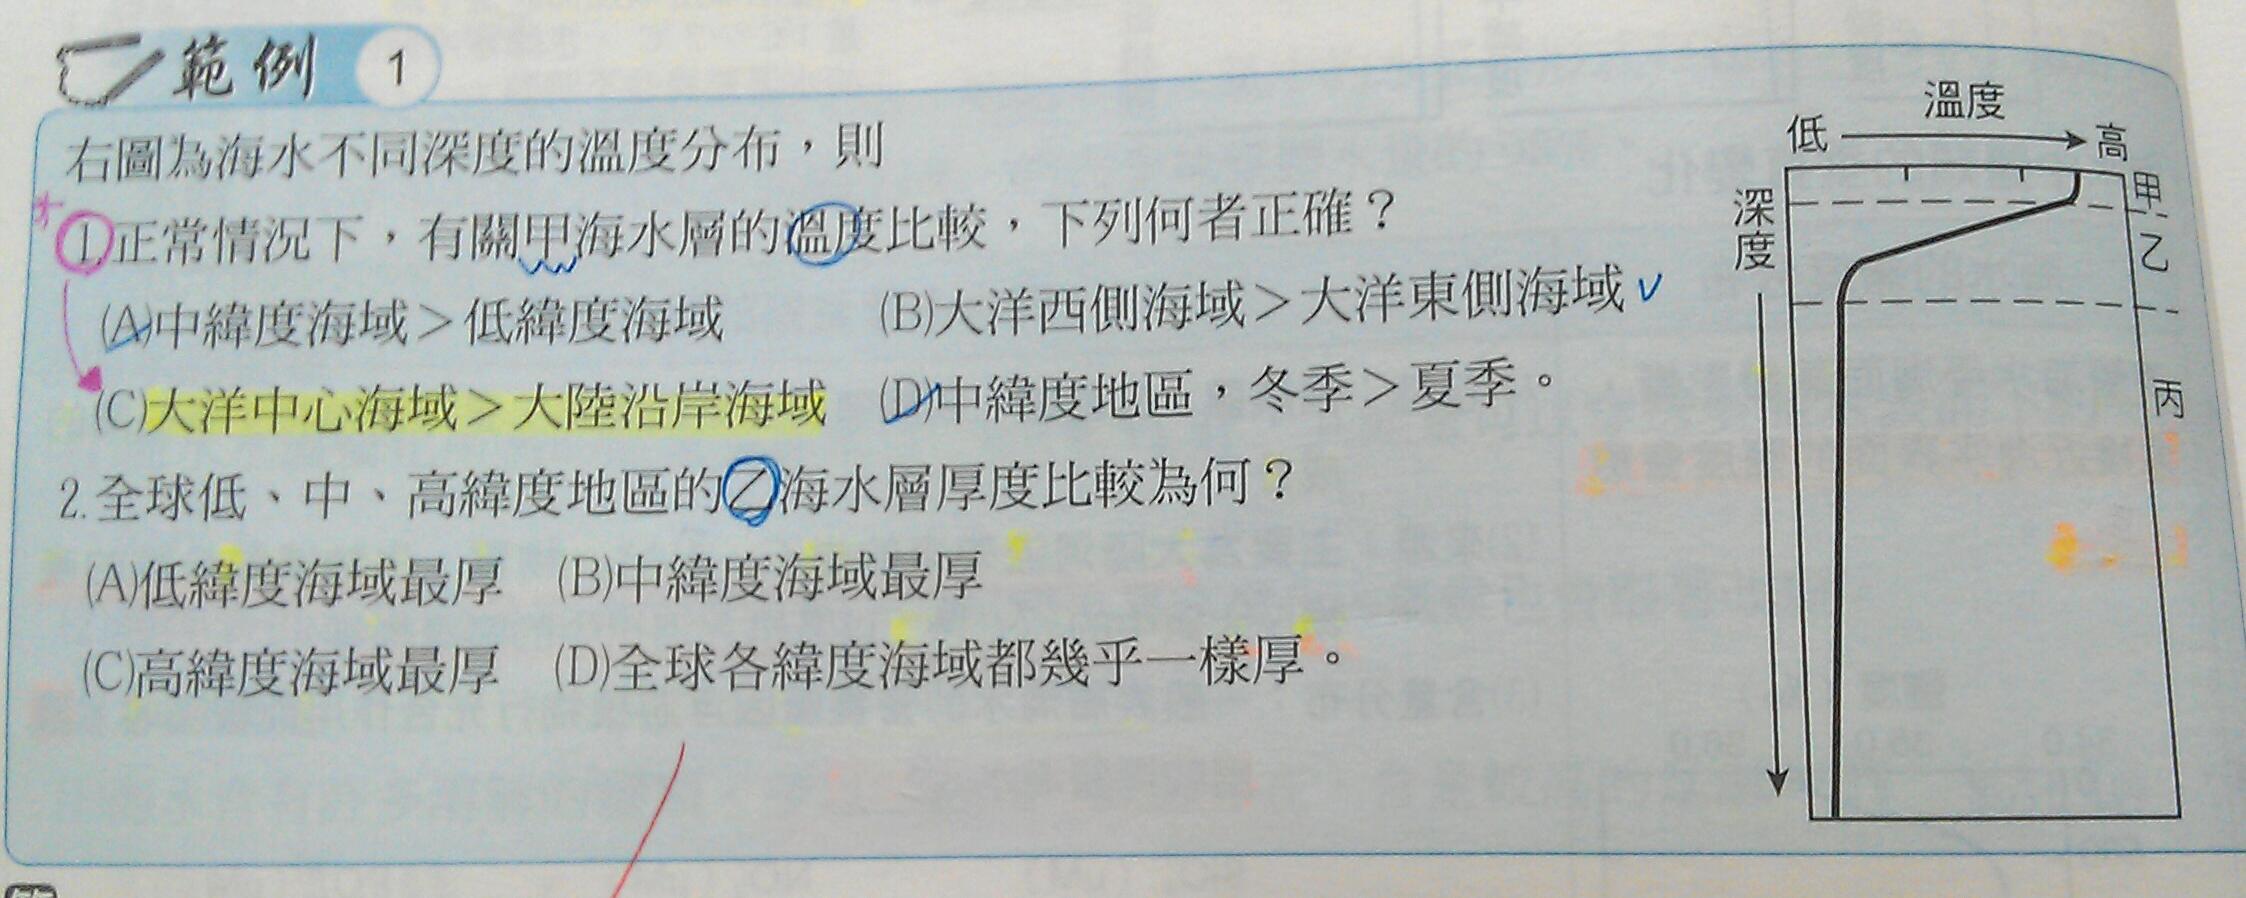 範例 1
右圖為海水不同深度的溫度分布，則
1.正常情況下，有關甲海水層的溫度比較，下列何者正確？
(A)中緯度海域＞低緯度海域 (B)大洋西側海域＞大洋東側海域
(C)大洋中心海域＞大陸沿岸海域 (D)中緯度地區，冬季＞夏季。
2.全球低、中、高緯度地區的乙海水層厚度比較為何？
(A)低緯度海域最厚 (B)中緯度海域最厚
(C)高緯度海域最厚 (D)全球各緯度海域都幾乎一樣厚。
溫度
低 高
深度
甲
乙
丙